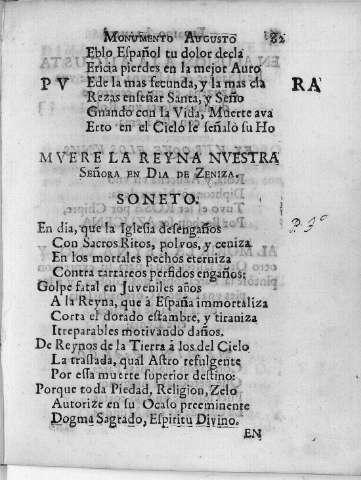 MONUMENTO AUGUSTO 82
Eblo Español tu dolor decla
Ericia pierdes en la mejor Auro
P V Ede la mas fecunda, y la mas cla RA
Rezas enseñar Santa, y Seño
Gnando con la Vida, Muerte ava
Erto en el Cielo le señalo su Ho
MVERE LA REYNA NVESTRA
SEÑORA EN DIA DE ZENIZA.
SONETO.
En dia, que la Iglesia desengaños
Con Sacros Ritos, polvos, y ceniza
En los mortales pechos eterniza
Contra tartareos perfidos engaños:
Golpe fatal en Juveniles años
A la Reyna, que à España immortaliza
Corta el dorado estambre, y tiraniza
Irreparables motivando daños.
De Reynos de la Tierra à los del Cielo
La traslada, qual Astro refulgente
Por essa muerte superior destino:
Porque toda Piedad, Religion, Zelo
Autorize en su Ocaso preeminente
Dogma Sagrado, Espiritu Divino.
EN